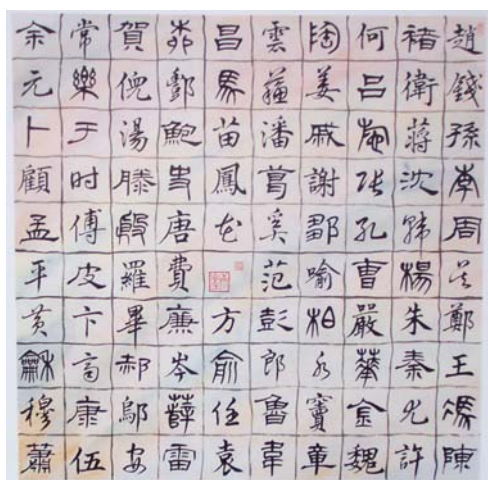 趙錢孫李周吳鄭王馮陳
褚衛蔣沈韓楊朱秦尤許
何呂施張孔曹嚴華金魏
陶姜戚謝鄒喻柏水竇章
雲蘇潘葛奚范彭郎魯韋
昌馬苗鳳花方俞任袁
柳酆鮑史唐費廉岑薛雷
賀倪湯滕殷羅畢郝鄔安
常樂于时傅皮卞齊康伍
余元卜顧孟平黃龢穆蕭